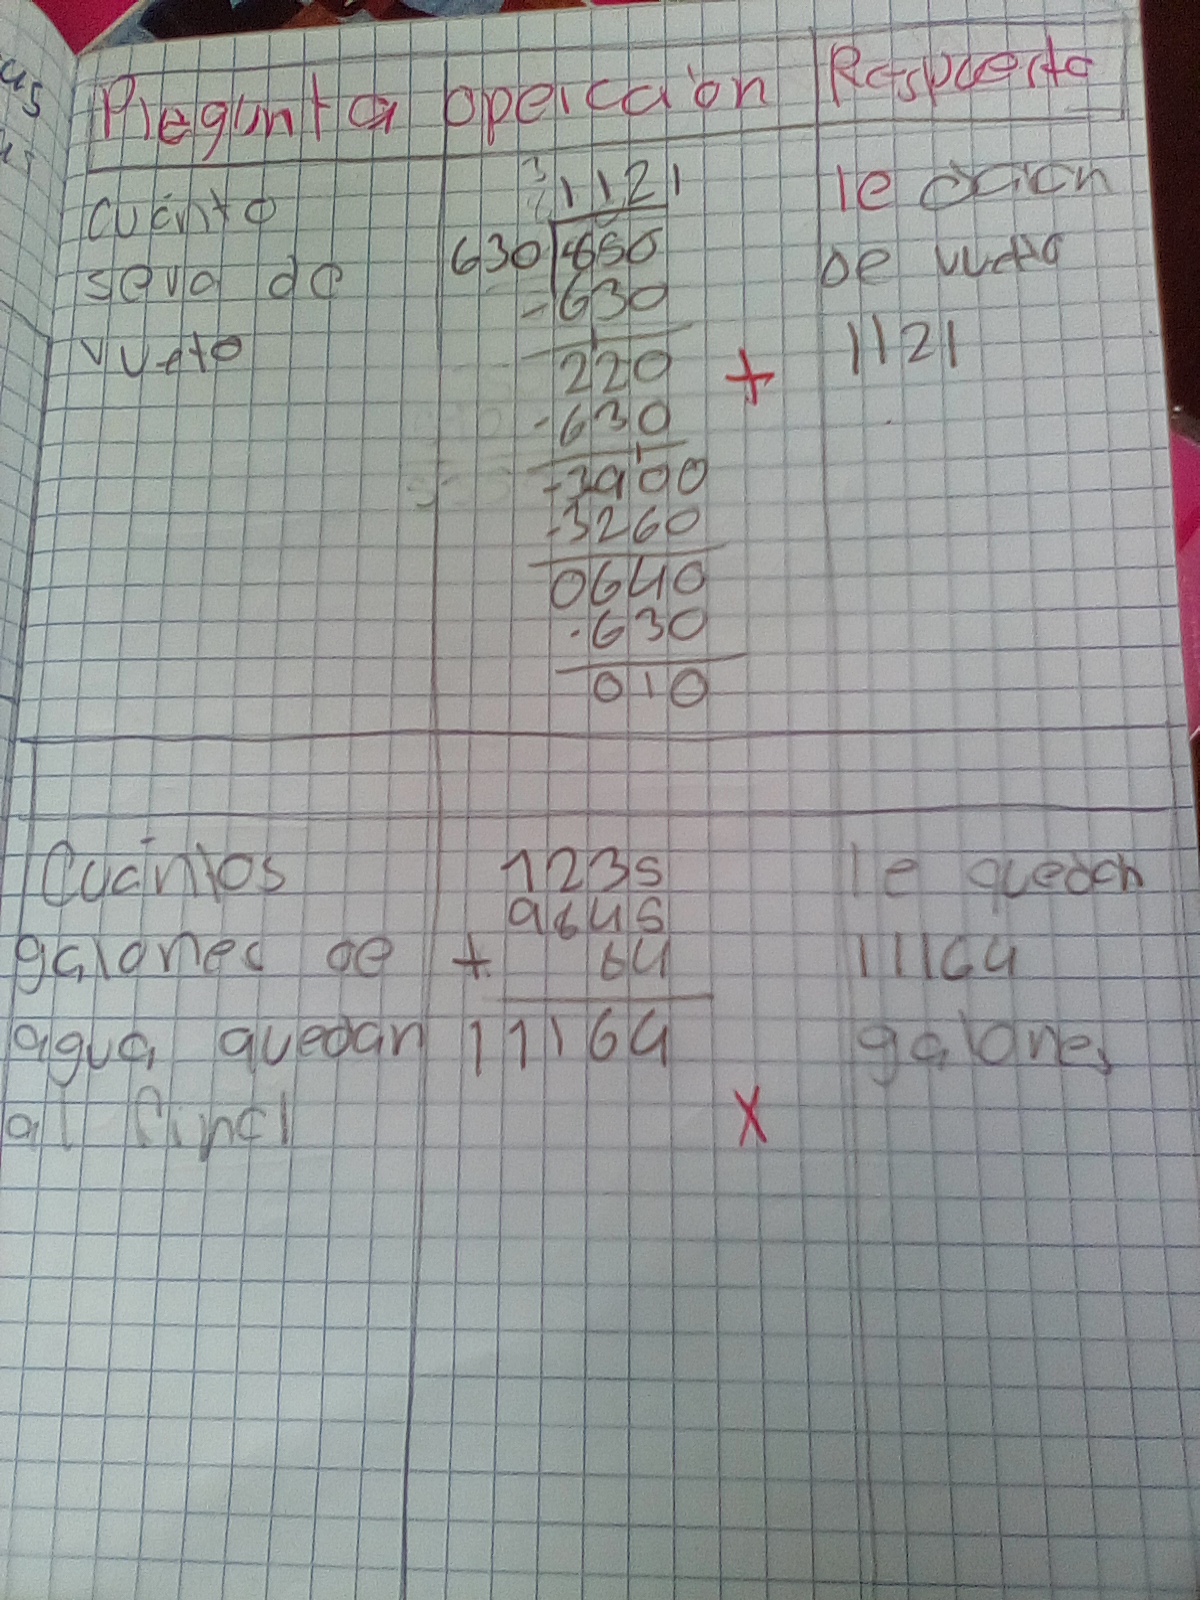 Pregunta opercaion Respuesta
cuánto
seva de
vueto
3 1121
630 850
-630
220
-630
-3900
-3260
0640
-630
010
+
le daran
de vuelta
1121
Cuántos
galones de
agua quedan
al final
1235
9645
+ 64
11164
x
le quedan
11164
galones